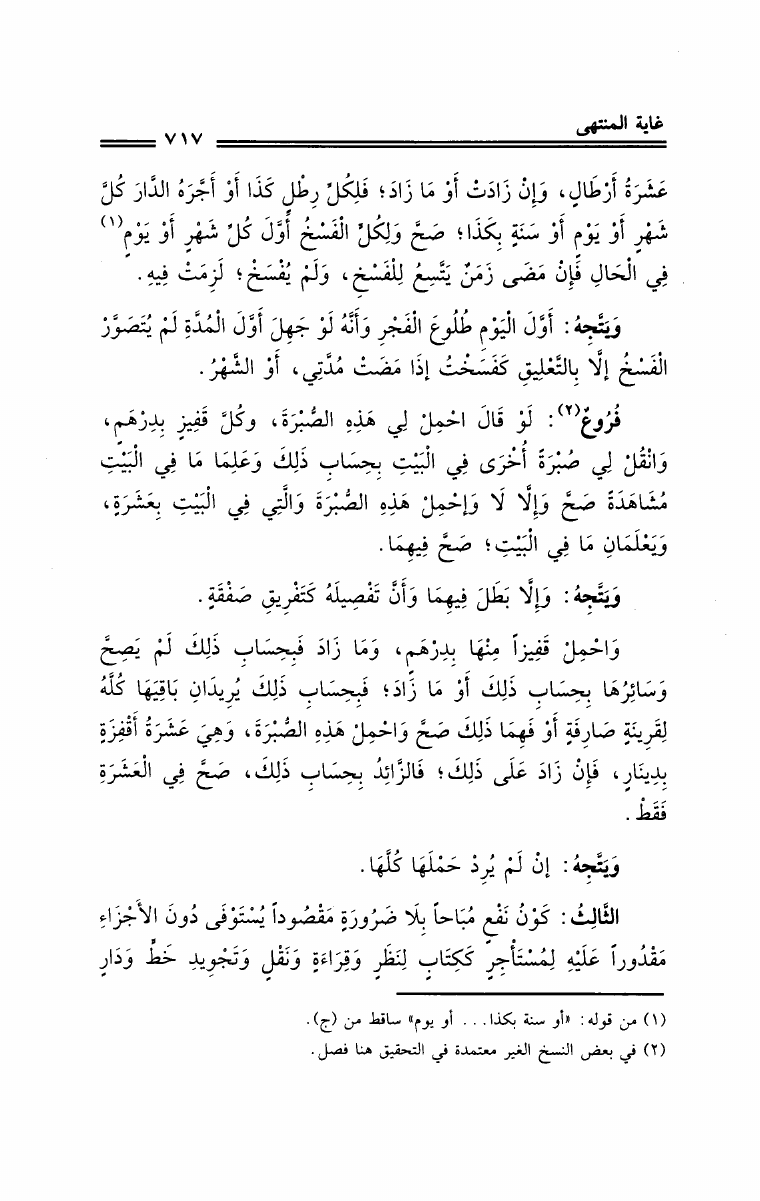 غاية المنتهى
٧١٧
عَشَرَةُ أَرْطَالٍ، وَإِنْ زَادَتْ أَوْ مَا زَادَ؛ فَلِكُلِّ رِطْلٍ كَذَا أَوْ أَجَّرَهُ الدَّارَ كُلَّ
شَهْرٍ أَوْ يَوْمٍ أَوْ سَنَةٍ بِكَذَا؛ صَحَّ وَلِكُلٍّ الْفَسْخُ أَوَّلَ كُلِّ شَهْرٍ أَوْ يَوْمٍ(١)
فِي الْحَالِ فَإِنْ مَضَى زَمَنٌ يَتَّسِعُ لِلْفَسْخِ، وَلَمْ يُفْسَخْ؛ لَزِمَتْ فِيهِ.
وَيَتَّجِهُ: أَوَّلَ الْيَوْمِ طُلُوعَ الْفَجْرِ وَأَنَّهُ لَوْ جَهِلَ أَوَّلَ الْمُدَّةِ لَمْ يُتَصَوَّرْ
الْفَسْخُ إِلَّا بِالتَّعْلِيقِ كَفَسَخْتُ إِذَا مَضَتْ مُدَّتِي، أَوْ الشَّهْرُ.
فُرُوعٌ(٢): لَوْ قَالَ احْمِلْ لِي هَذِهِ الصُّبْرَةَ، وكُلَّ قَفِيزٍ بِدِرْهَمٍ،
وَانْقُلْ لِي صُبْرَةً أُخْرَى فِي الْبَيْتِ بِحِسَابِ ذَلِكَ وَعَلِمَا مَا فِي الْبَيْتِ
مُشَاهَدَةً صَحَّ وَإِلَّا لَا وَإحْمِلْ هَذِهِ الصُّبْرَةَ وَالَّتِي فِي الْبَيْتِ بِعَشَرَةٍ،
وَيَعْلَمَانِ مَا فِي الْبَيْتِ؛ صَحَّ فِيهِمَا.
وَيَتَّجِهُ: وَإِلَّا بَطَلَ فِيهِمَا وَأَنَّ تَفْصِيلَهُ كَتَفْرِيقِ صَفْقَةٍ.
وَاحْمِلْ قَفِيزاً مِنْهَا بِدِرْهَمٍ، وَمَا زَادَ فَبِحِسَابِ ذَلِكَ لَمْ يَصِحَّ
وَسَائِرُهَا بِحِسَابِ ذَلِكَ أَوْ مَا زَادَ؛ فَبِحِسَابِ ذَلِكَ يُرِيدَانِ بَاقِيَهَا كُلَّهُ
لِقَرِينَةٍ صَارِفَةٍ أَوْ فَهِمَا ذَلِكَ صَحَّ وَاحْمِلْ هَذِهِ الصُّبْرَةَ، وَهِيَ عَشَرَةُ أَقْفِزَةٍ
بِدِينَارٍ، فَإِنْ زَادَ عَلَى ذَلِكَ؛ فَالزَّائِدُ بِحِسَابِ ذَلِكَ، صَحَّ فِي الْعَشَرَةِ
فَقَطْ.
وَيَتَّجِهُ: إِنْ لَمْ يُرِدْ حَمْلَهَا كُلَّهَا.
الثَّالِثُ: كَوْنُ نَفْعٍ مُبَاحاً بِلَا ضَرُورَةٍ مَقْصُوداً يُسْتَوْفَى دُونَ الأَجْزَاءِ
مَقْدُوراً عَلَيْهِ لِمُسْتَأْجِرٍ كَكِتَابٍ لِنَظَرٍ وَقِرَاءَةٍ وَنَقْلٍ وَتَجْوِيدِ خَطٍّ وَدَارٍ
(١) من قوله: «أو سنة بكذا... أو يوم» ساقط من (ج).
(٢) في بعض النسخ الغير معتمدة في التحقيق هنا فصل.